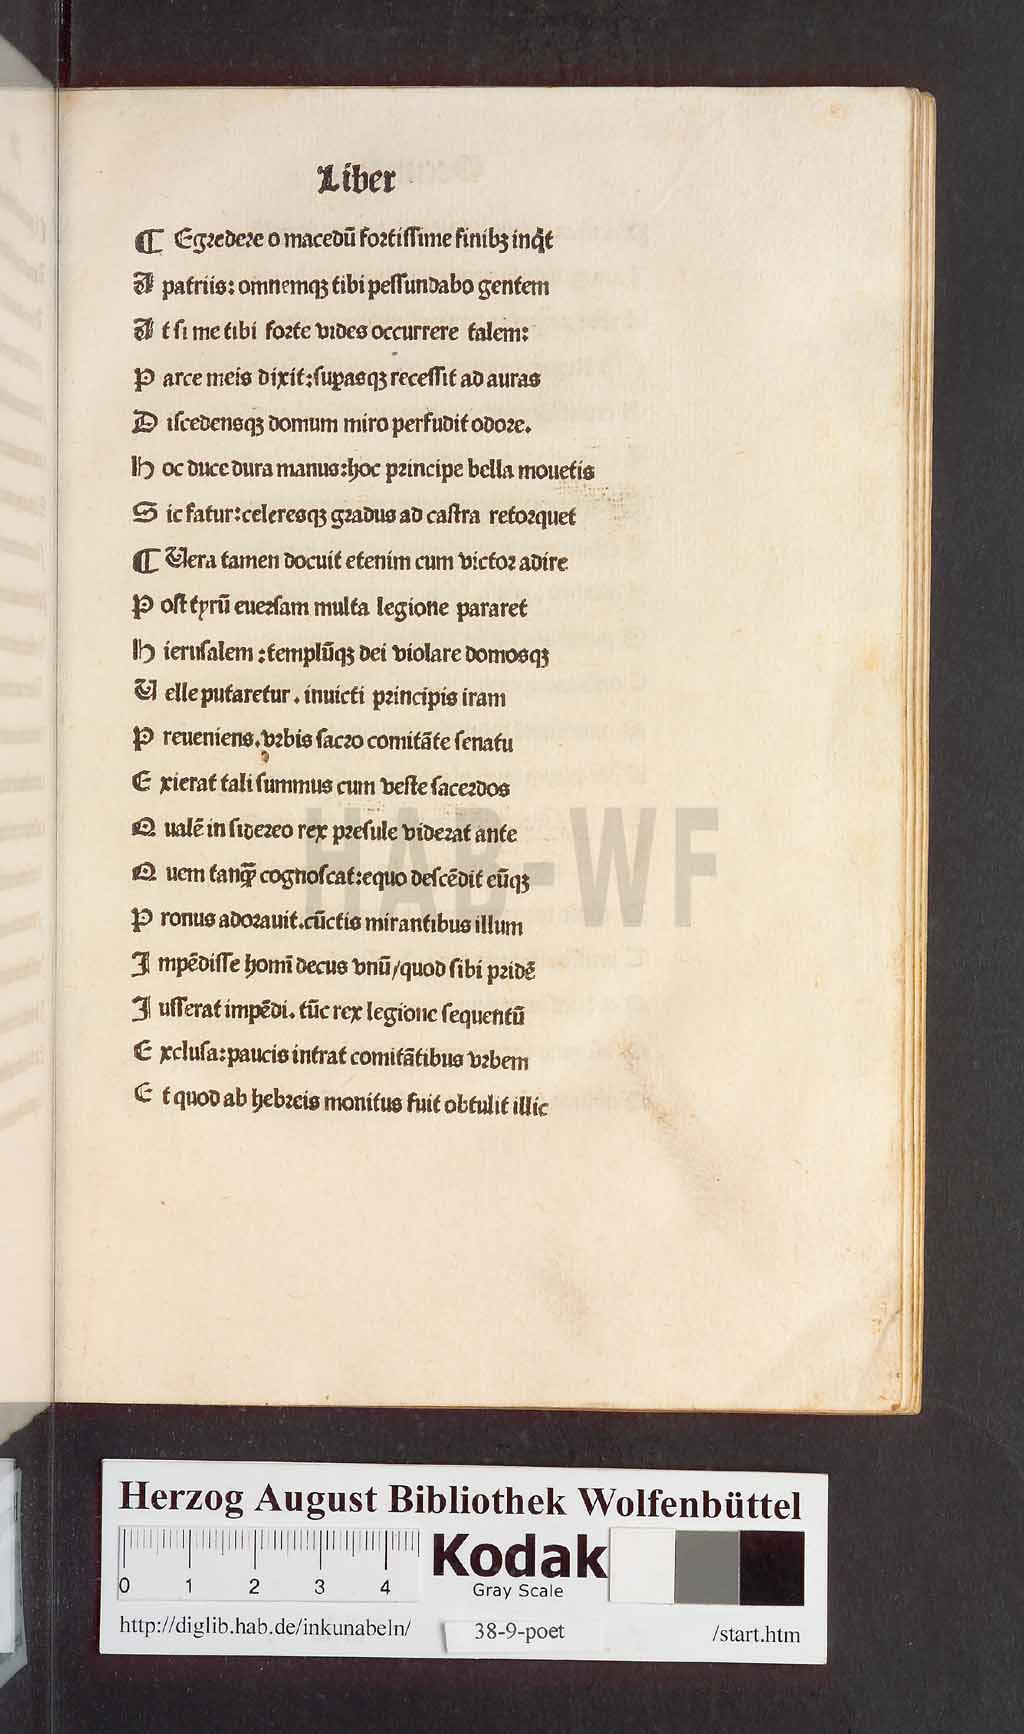 Liber
¶ Egredere o macedū fortissime finibꝫ inq̄t
A patriis: omnemqꝫ tibi pessundabo gentem
A t si me tibi forte vides occurrere talem:
P arce meis dixit: sup̱asqꝫ recessit ad auras
D iscedensqꝫ domum miro perfudit odore.
H oc duce dura manus: hoc principe bella mouetis
S ic fatur: celeresqꝫ gradus ad castra retorquet
¶ Uera tamen docuit etenim cum victor adire
P ost tyrū euersam multa legione pararet
H ierusalem: templūqꝫ dei violare domosqꝫ
U elle putaretur. inuicti principis iram
P reueniens. vrbis sacro comitāte senatu
E xierat tali summus cum veste sacerdos
Q ualē in sidereo rex presule viderat ante
Q uem tanqꝫ̄ cognoscat: equo descēdit eūqꝫ
P ronus adorauit. cūctis mirantibus illum
I mpēdisse homī decus vnū/quod sibi pridē
I usserat impēdi. tūc rex legione sequentū
E xclusa: paucis intrat comitātibus vrbem
E t quod ab hebreis monitus fuit obtulit illic
HAB-WF
Herzog August Bibliothek Wolfenbüttel
0 1 2 3 4
Kodak
Gray Scale
http://diglib.hab.de/inkunabeln/ 38-9-poet /start.htm